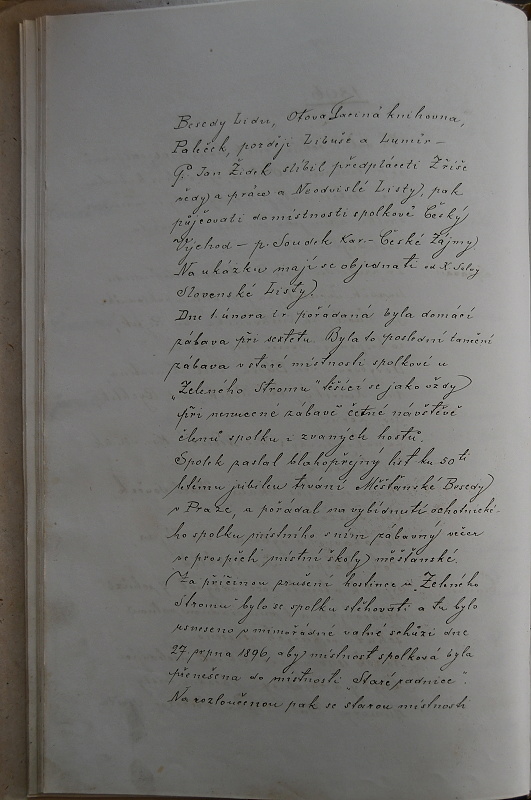 Besedy Lidu, Otova Laciná knihovna,
Paleček, později Libuše a Lumír –
P. Jan Židek slíbil předpláceti Zříše
vědy a práce a Neodvislé Listy, pak
půjčovati do místnosti spolkové Český
Východ – p. Soudek Kar. – České Zájmy
Na ukázku mají se objednati od K. 
Slovenské Listy.
Dne 1. února t r pořádaná byla domácí
zábava při sextetu. Byla to poslední taneční
zábava v staré místnosti spolkové u
„Zeleného Stromu" těšící se jako vždy
při nenucené zábavě četné návštěvě
členů spolku i zvaných hostů.
Spolek zaslal blahopřejný list ku 50 ti
letému jubileu trvání Měšťanské Besedy
v Praze, a pořádal na vybídnutí ochotnické-
ho spolku místního s ním zábavný večer
ve prospěch místní školy měšťanské.
Za příčinou zrušení hostince u „Zeleného
Stromu" bylo se spolku stěhovati a tu bylo
usneseno v mimořádné valné schůzi dne
27. srpna 1896, aby místnost spolková byla
přenešena do místnosti „Staré radnice".
Na rozloučenou pak se starou místností